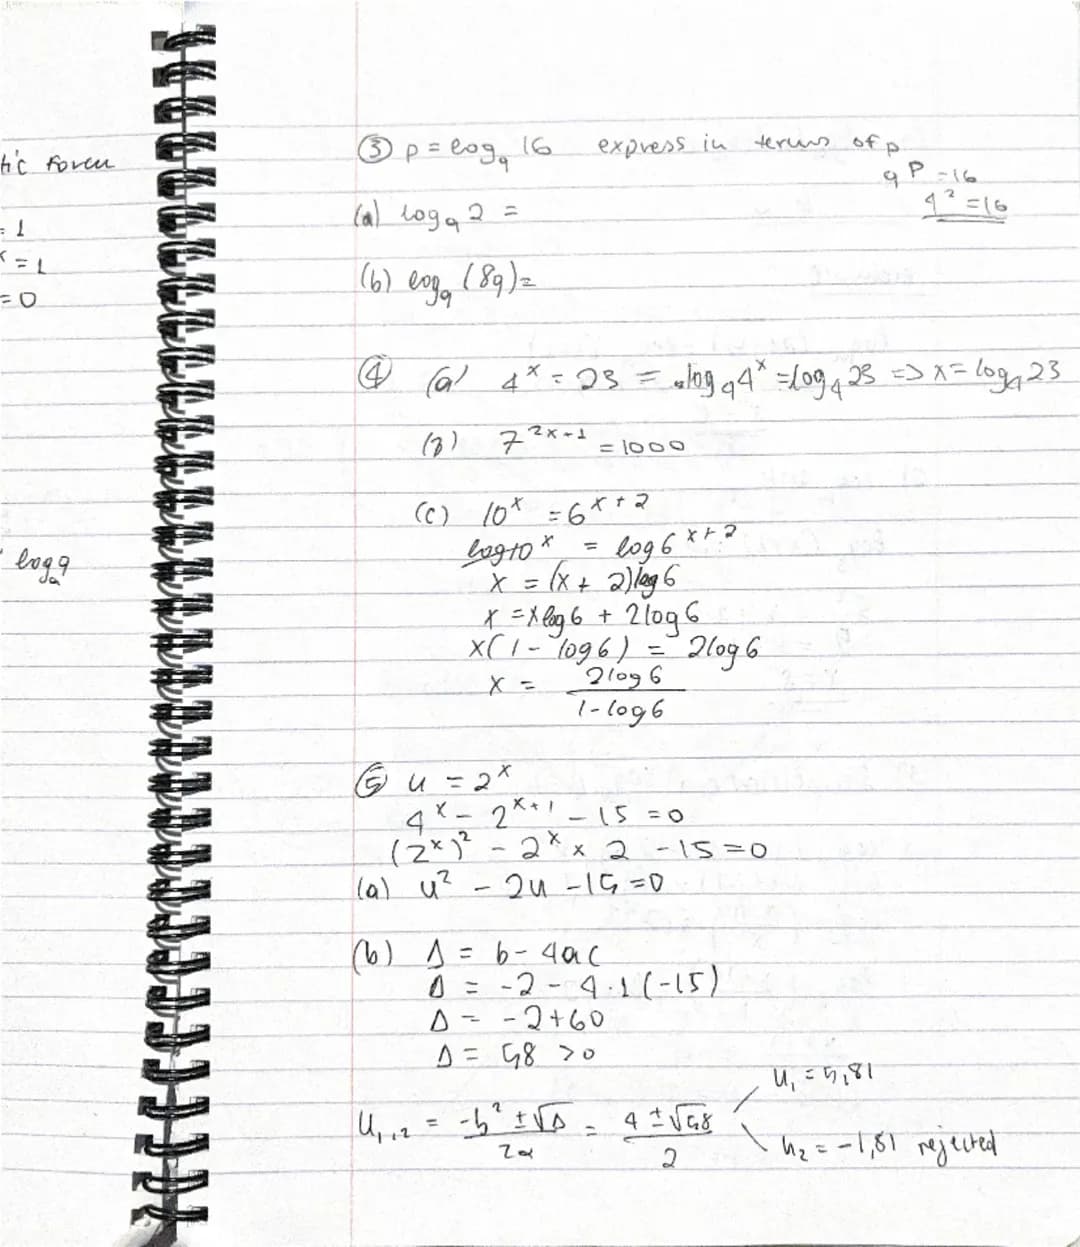 tic form
= 1
x = 1
= 0
log q
③ p = log_q 16 express in terms of p
q^p = 16
4^2 = 16
(a) log_q 2 =
(b) log_q (8q) =
④ (a) 4^x = 23 = log_4 4^x = log_4 23 => x = log_4 23
(b) 7^{2x+1} = 1000
(c) 10^x = 6^{x+2}
log10^x = log6^{x+2}
x = (x + 2)log6
x = xlog6 + 2log6
x(1 - log6) = 2log6
x = 2log6 / 1-log6
⑤ u = 2^x
4^x - 2^{x+1} - 15 = 0
(2^x)^2 - 2^x × 2 - 15 = 0
(a) u^2 - 2u - 15 = 0
(b) Δ = b - 4ac
Δ = -2 - 4·1(-15)
Δ = -2+60
Δ = 58 >0
u_{1,2} = -b^2 ± √Δ / 2a = 4 ± √58 / 2
u_1 = 5,81
u_2 = -1,81 rejected